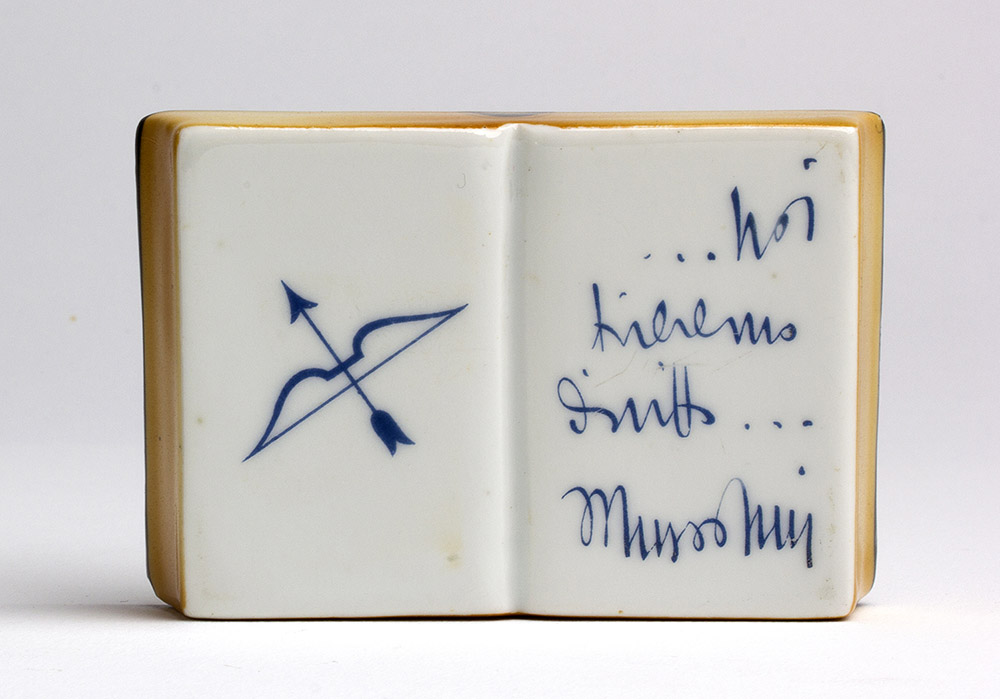 ...noi
tireremo
diritto...
Mussolini